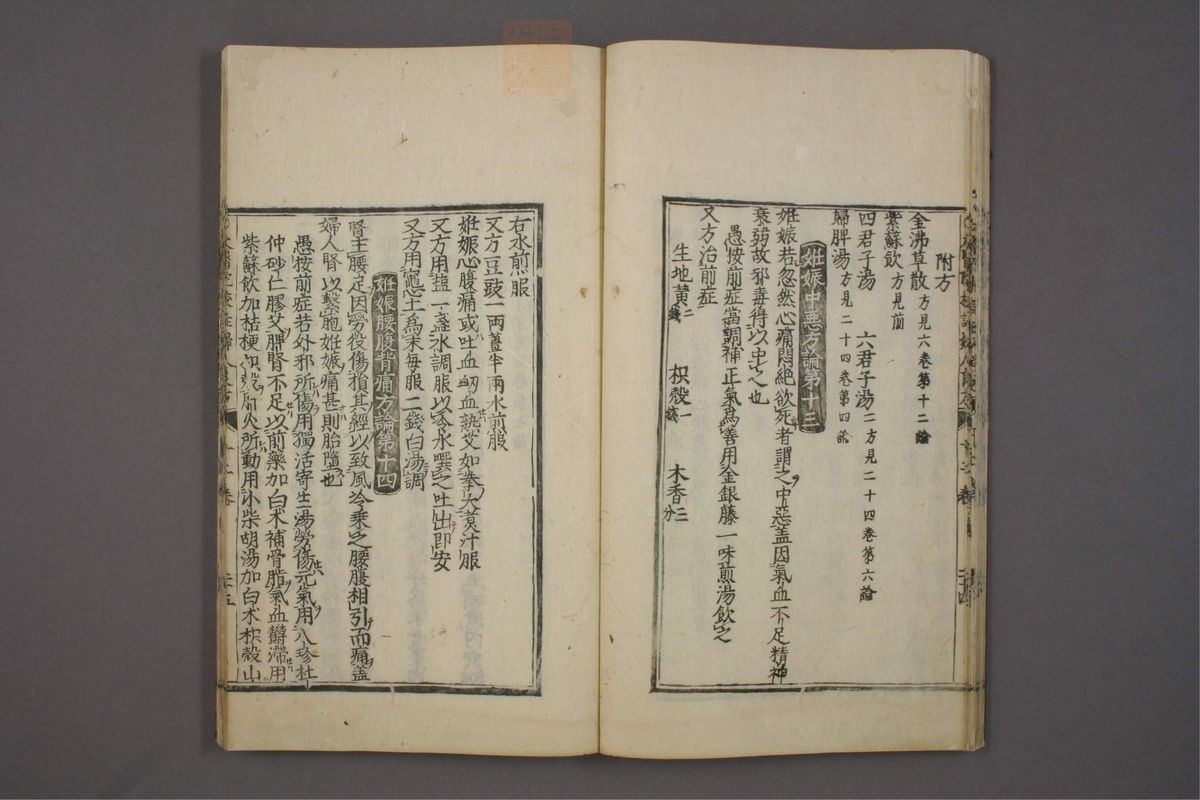 附方
金沸草散方見六卷第十二論
紫蘇飲方見前
四君子湯　六君子湯二方見二十四卷第六論
歸脾湯方見二十四卷第四論
妊娠中惡方論第十三
妊娠若忽然心痛悶絕欲死者謂之中惡蓋因氣血不足精神
衰弱故邪毒得以中之也
愚按前症當調補正氣爲善用金銀藤一味煎湯飲之
又方治前症
生地黃二錢　枳殼一錢　木香三分
右水煎服
又方豆豉一兩薑半兩水煎服
妊娠心腹痛或吐血衂血熟艾如拳大煮汁服
又方用塩一盞水調服以冷水噀之吐出即安
又方用竈土爲末每服二錢白湯調
妊娠腰腹背痛方論第十四
腎主腰足因勞役傷損其經以致風冷乘之腰腹相引而痛蓋
婦人腎以繫胞妊娠痛甚則胎墮也
愚按前症若外邪所傷用獨活寄生湯勞傷元氣用八珍杜
仲砂仁膠艾脾腎不足以前藥加白朮補骨脂氣血欝滯用
紫蘇飲加桔梗枳殼肝火所動用小柴胡湯加白朮枳殼山